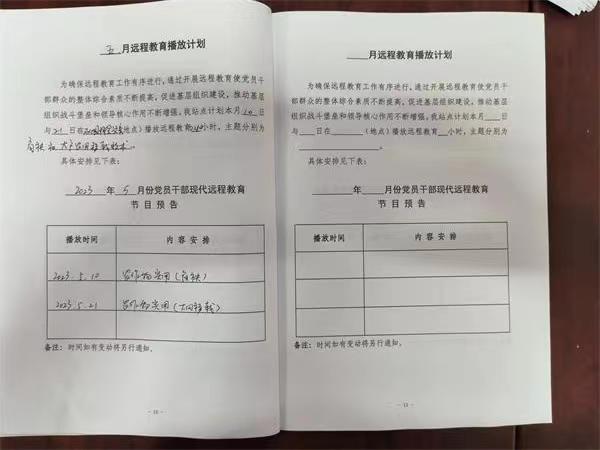 五月远程教育播放计划
为确保远程教育工作有序进行,通过开展远程教育使党员干
部群众的整体综合素质不断提高,促进基层组织建设,推动基层
组织战斗堡垒和领导核心作用不断增强,我站点计划本月10日
与21日在(地点)播放远程教育小时,主题分别为
育秧和
具体安排见下表:
2023年5月份党员干部现代远程教育
节目预告
播放时间 内容安排
2023.5.10 农作物实用(育秧)
2023.5.21 农作物实用(大田移栽)
备注:时间如有变动将另行通知。
月远程教育播放计划
为确保远程教育工作有序进行,通过开展远程教育使党员干
部群众的整体综合素质不断提高,促进基层组织建设,推动基层
组织战斗堡垒和领导核心作用不断增强,我站点计划本月日
与日在(地点)播放远程教育小时,主题分别为
。
具体安排见下表:
年月份党员干部现代远程教育
节目预告
播放时间 内容安排
备注:时间如有变动将另行通知。